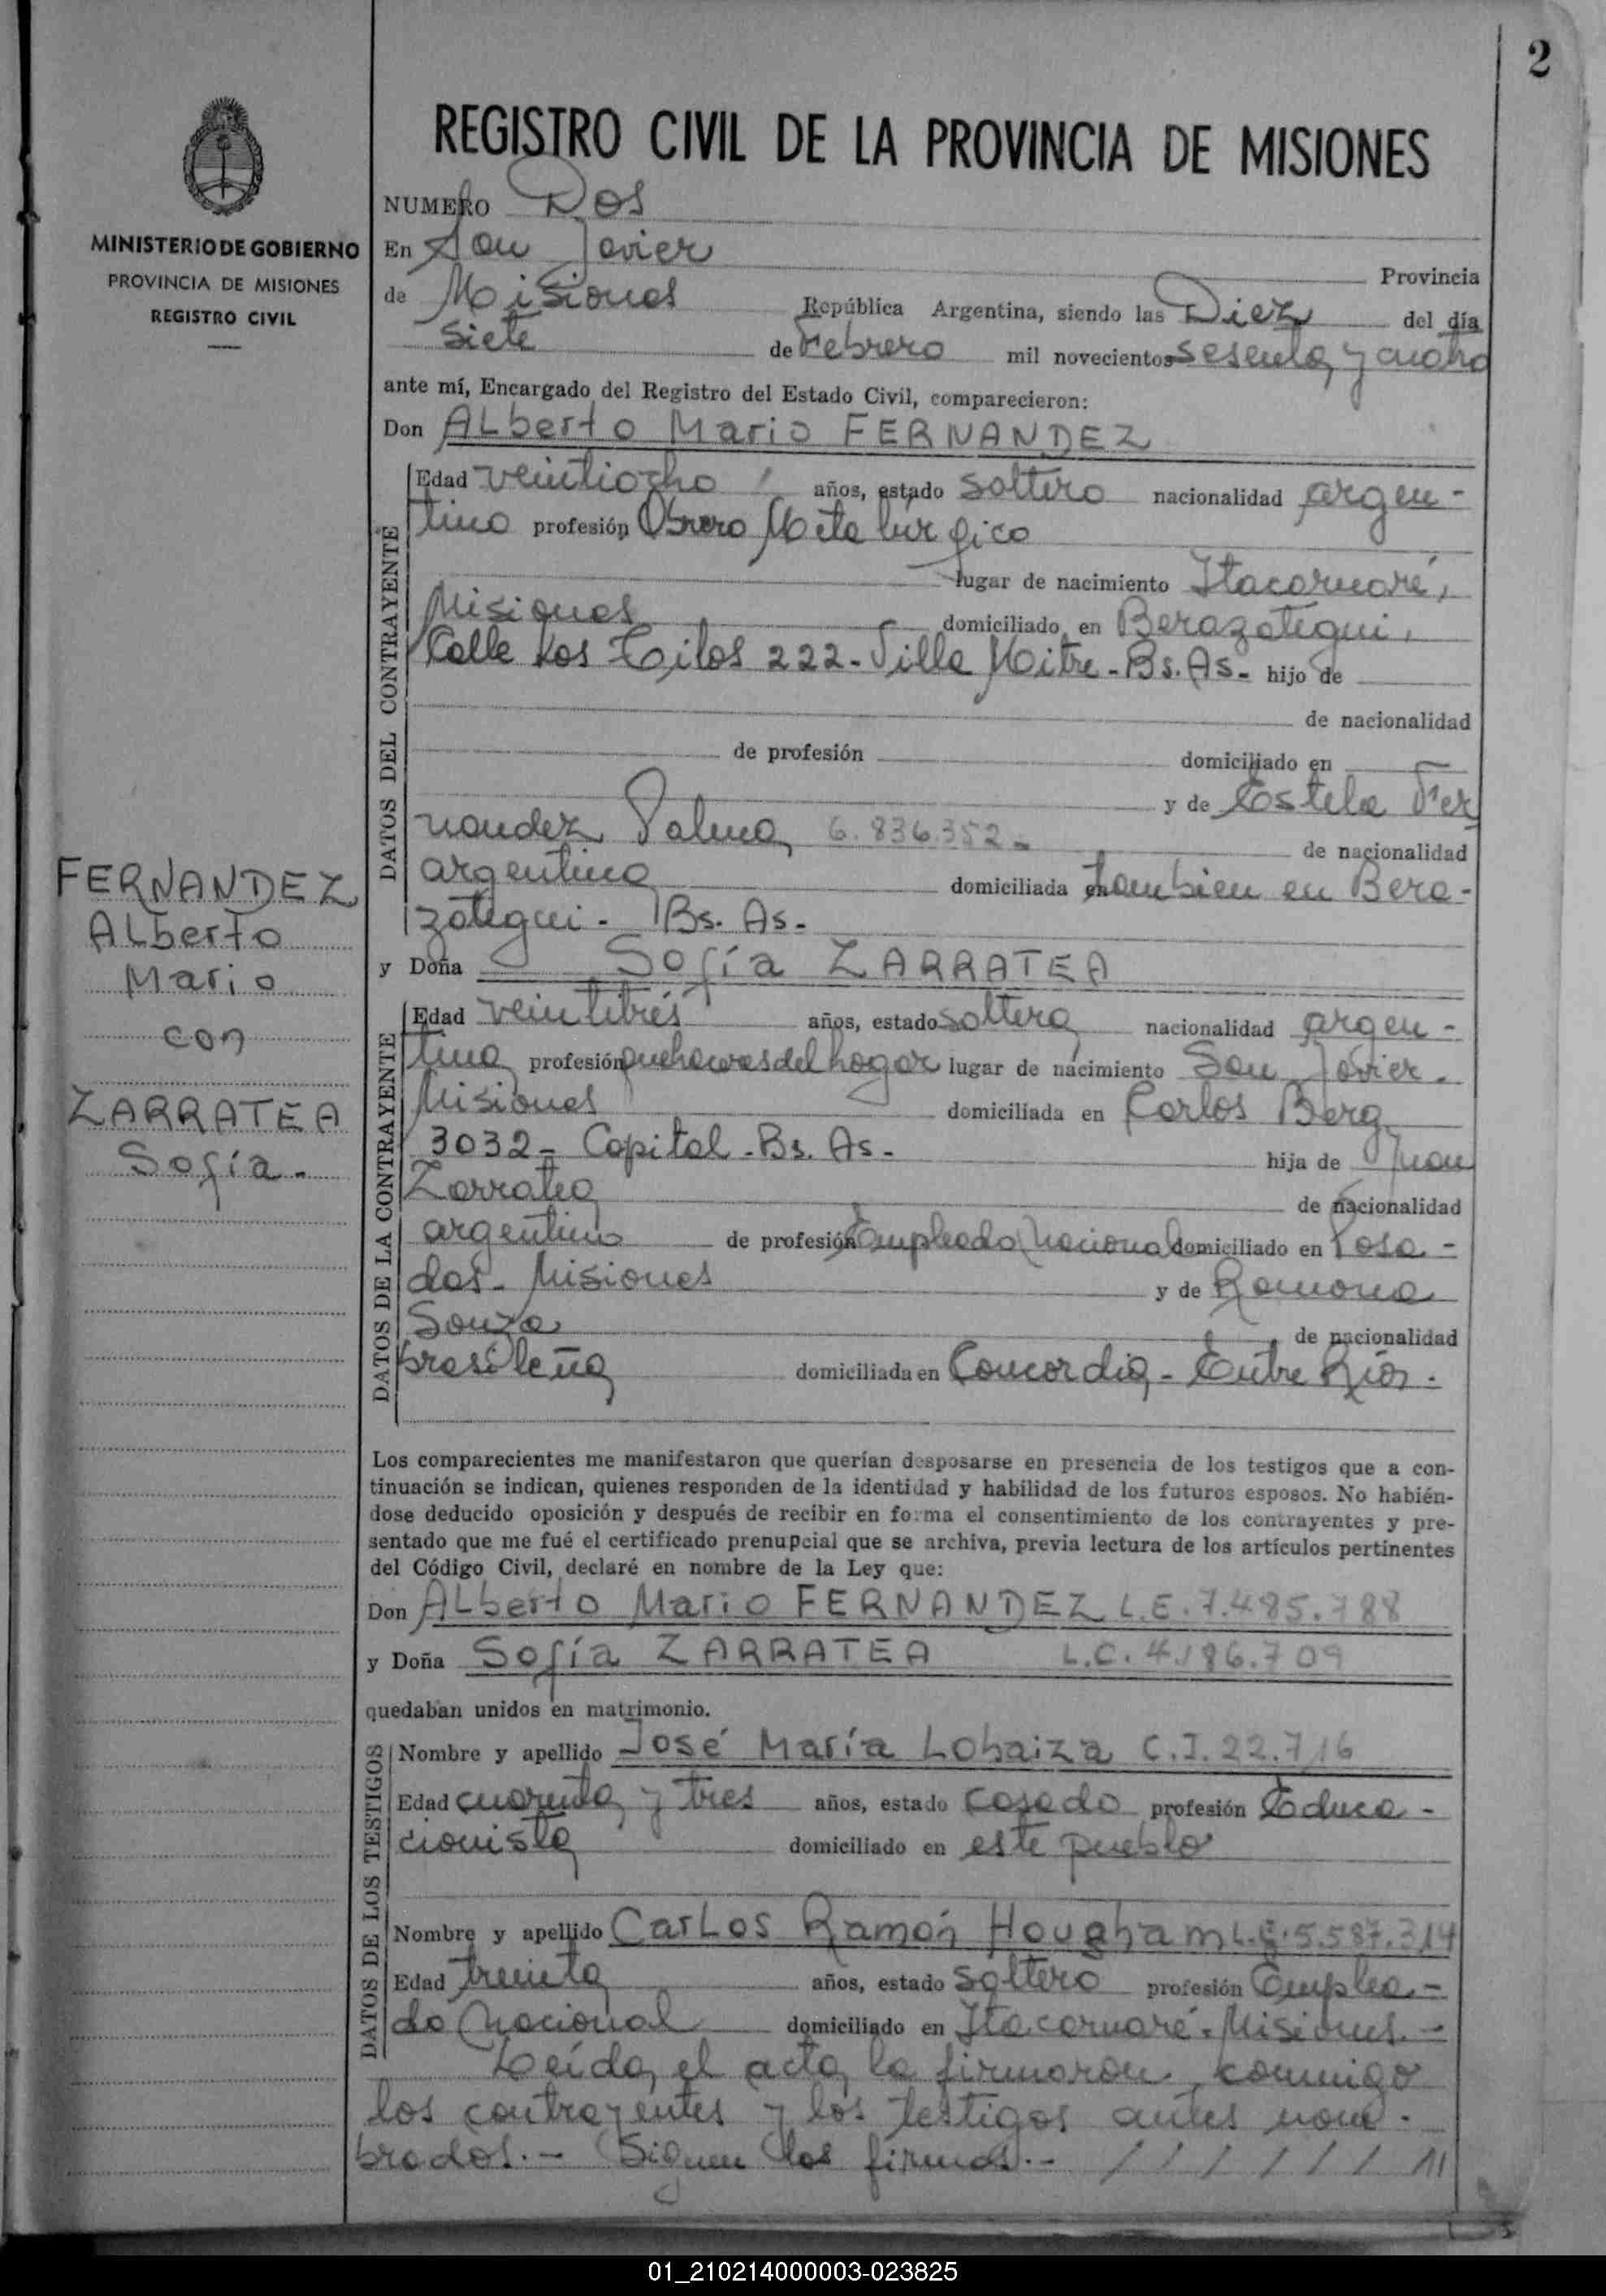 2
REGISTRO CIVIL DE LA PROVINCIA DE MISIONES
MINISTERIO DE GOBIERNO
PROVINCIA DE MISIONES
REGISTRO CIVIL
NUMERO Dos
En San Javier Provincia
de Misiones República Argentina, siendo las Diez del día
siete de Febrero mil novecientos sesenta y cuatro
ante mí, Encargado del Registro del Estado Civil, comparecieron:
Don ALberto Mario FERNANDEZ
DATOS DEL CONTRAYENTE
Edad veintiocho años, estado soltero nacionalidad argen-
tino profesión Obrero Metalúrgico
lugar de nacimiento Itacaruaré,
Misiones domiciliado en Berazategui,
Calle Los Tilos 222- Villa Mitre - Bs. As- hijo de
de nacionalidad
de profesión domiciliado en
y de Estela Fer
nandez Palma 6.836.352- de nacionalidad
argentina domiciliada en tambien en Bera-
zategui - Bs. As-
y Doña Sofía ZARRATEA
FERNANDEZ
ALberto
Mario
con
ZARRATEA
Sofía-
DATOS DE LA CONTRAYENTE
Edad veintitrés años, estado soltera nacionalidad argen-
tina profesión quehaceres del hogar lugar de nacimiento San Javier.
Misiones domiciliada en Carlos Berg
3032- Capital - Bs. As- hija de Juan
Zarratea de nacionalidad
argentino de profesión Empleado Nacional domiciliado en Posa-
das- Misiones y de Ramona
Souza de nacionalidad
brasileña domiciliada en Concordia - Entre Ríos.
Los comparecientes me manifestaron que querían desposarse en presencia de los testigos que a con-
tinuación se indican, quienes responden de la identidad y habilidad de los futuros esposos. No habién-
dose deducido oposición y después de recibir en forma el consentimiento de los contrayentes y pre-
sentado que me fué el certificado prenupcial que se archiva, previa lectura de los artículos pertinentes
del Código Civil, declaré en nombre de la Ley que:
Don ALberto Mario FERNANDEZ L.E. 7.485.788
y Doña Sofía ZARRATEA L.C. 4.186.709
quedaban unidos en matrimonio.
DATOS DE LOS TESTIGOS
Nombre y apellido José María Lobaiza C.I. 22.716
Edad cuarenta y tres años, estado casado profesión Educa-
cionista domiciliado en este pueblo
Nombre y apellido CarLos Ramón Hougham L.E. 5.587.314
Edad treinta años, estado soltero profesión Emplea-
do Nacional domiciliado en Itacaruaré - Misiones.-
Leída el acta la firmaron conmigo
los contrayentes y los testigos antes nom-
brados.- Siguen las firmas.- / / / / / / //
01_210214000003-023825